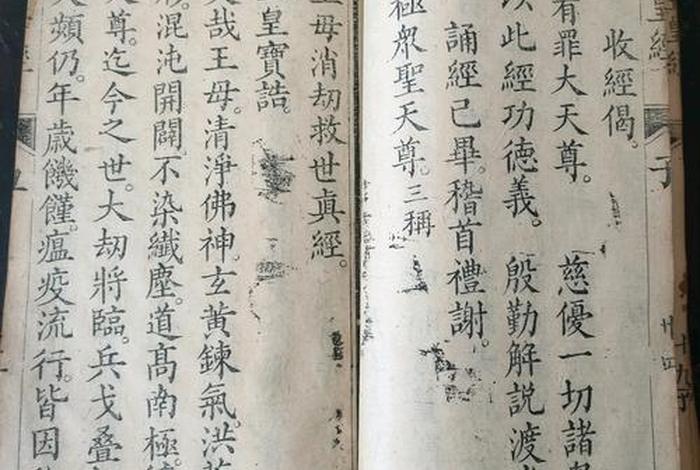 皇經
收經偈。
有罪大天尊。 慈優一切諸
以此經功德義。 殷勤解説渡
誦經已畢。稽首禮謝。
極衆聖天尊。三稱
王母消劫救世眞經。
皇寶誥。
哉王母。清淨佛神。玄黄鍊氣。洪
混沌開闢。不染纖塵。道髙南極
天尊。迄今之世。大劫將臨。兵戈叠
頻仍。年歲饑饉。瘟疫流行。皆因